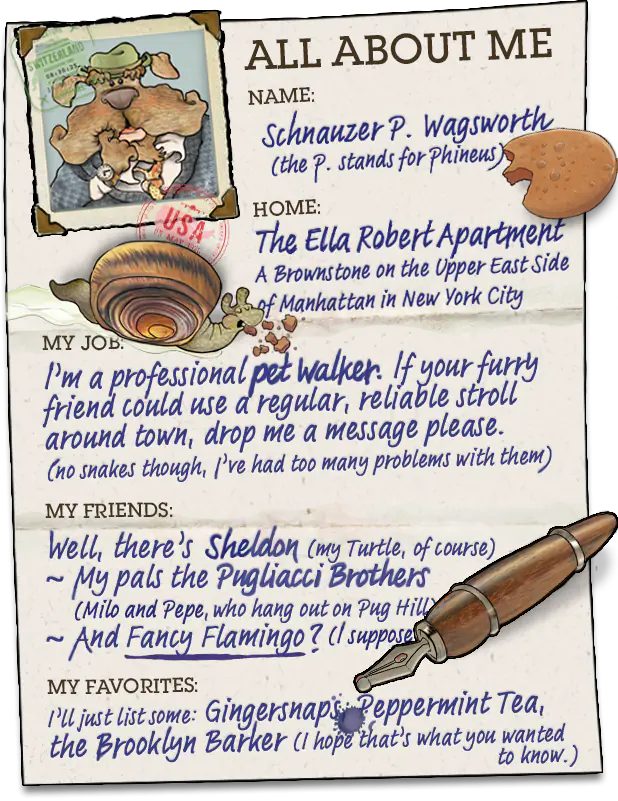 SWITZERLAND
ALL ABOUT ME
NAME:
Schnauzer P. Wagsworth
(the P. stands for Phineus)
HOME:
USA
The Ella Robert Apartment
A Brownstone on the Upper East Side
of Manhattan in New York City
MY JOB:
I'm a professional pet walker. If your furry
friend could use a regular, reliable stroll
around town, drop me a message please.
(no snakes though, I've had too many problems with them)
MY FRIENDS:
Well, there's Sheldon (my Turtle, of course)
~ My pals the Pugliacci Brothers
(Milo and Pepe, who hang out on Pug Hill)
~ And Fancy Flamingo? (I suppose
MY FAVORITES:
I'll just list some: Gingersnaps, Peppermint Tea,
the Brooklyn Barker (I hope that's what you wanted
to know.)